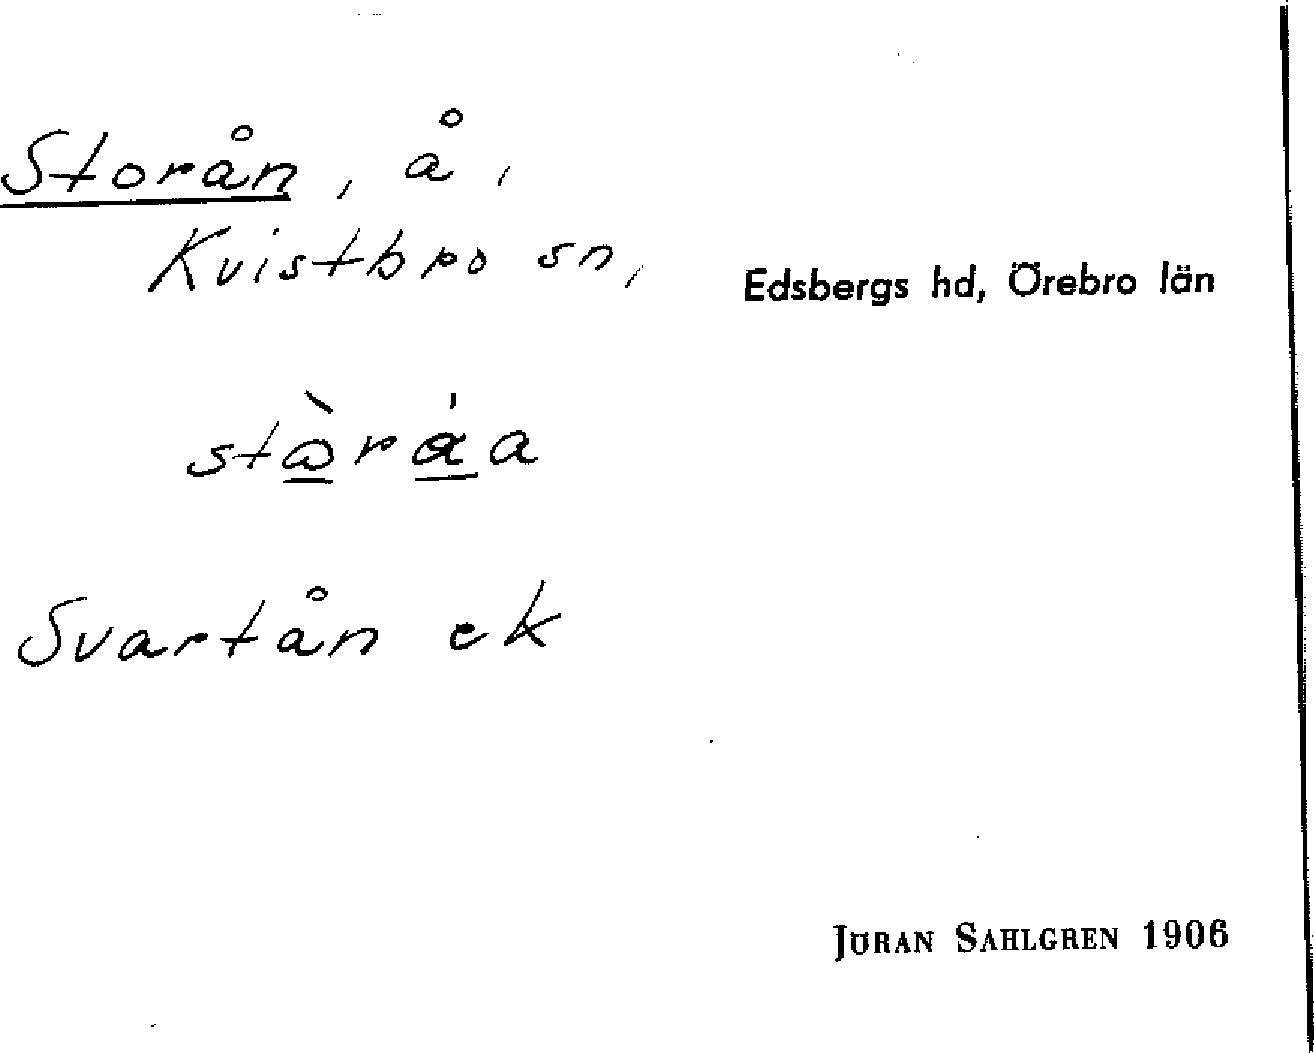 Storån, å,
Kvistbro sn, Edsbergs hd, Örebro län
Svartån ek
JÖRAN SAHLGREN 1906